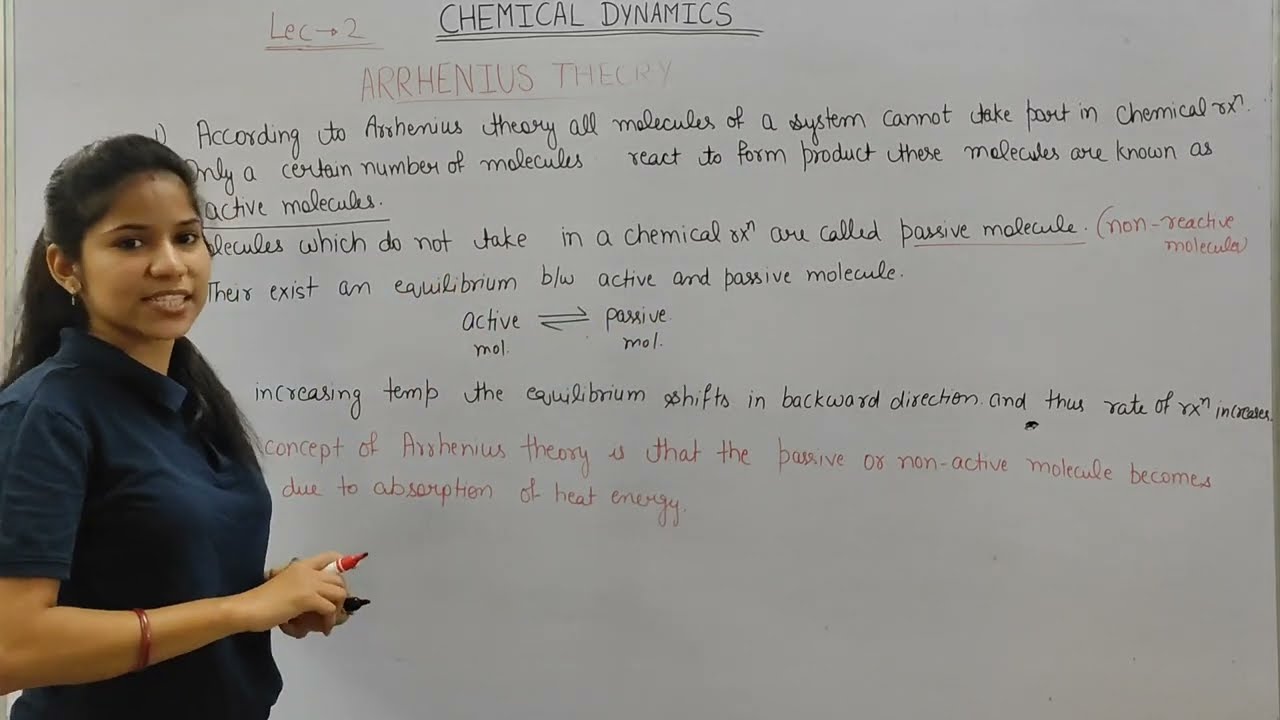 Lec→2
CHEMICAL DYNAMICS
ARRHENIUS THEORY
1) According to Arrhenius theory all molecules of a system cannot take part in chemical rxⁿ.
Only a certain number of molecules react to form product these molecules are known as
active molecules.
olecules which do not take in a chemical rxⁿ are called passive molecule. (non-reactive
molecule)
Their exist an equilibrium b/w active and passive molecule.
active ⇌ passive
mol. mol.
increasing temp the equilibrium shifts in backward direction and thus rate of rxⁿ increases.
concept of Arrhenius theory is that the passive or non-active molecule becomes
due to absorption of heat energy.